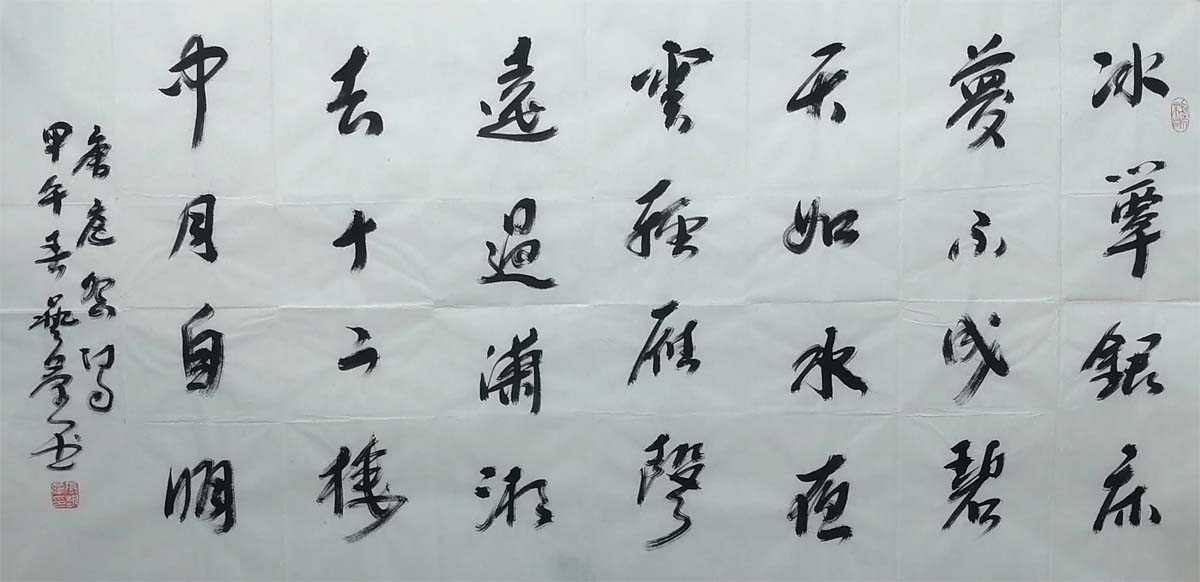 冰簟銀床
夢不成碧
天如水夜
雲輕雁聲
遠過瀟湘
去十二樓
中月自明
唐庭筠詞
甲午春藝書